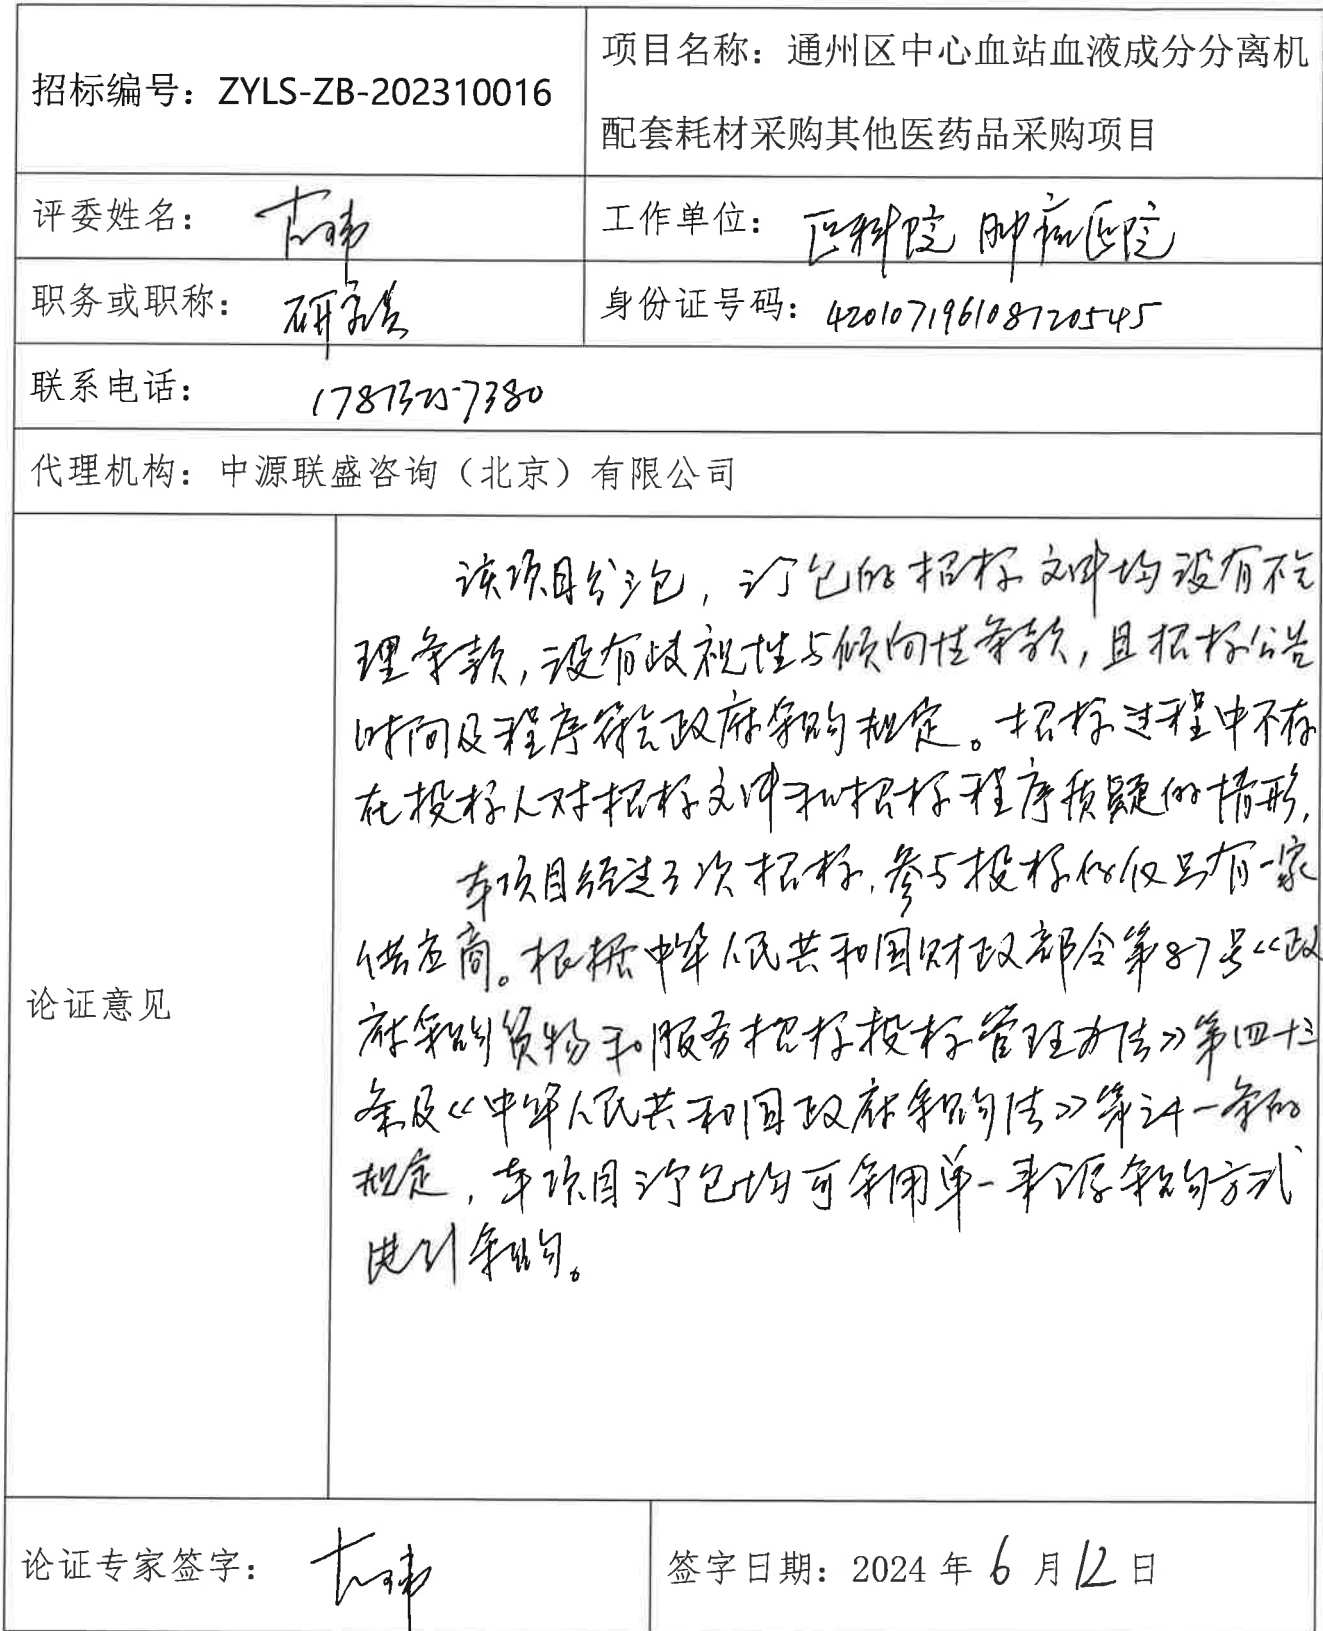 招标编号：ZYLS-ZB-202310016
项目名称：通州区中心血站血液成分分离机
配套耗材采购其他医药品采购项目
评委姓名：
工作单位：医科院肿瘤医院
职务或职称：研究员
身份证号码：420107196108120545
联系电话：
代理机构：中源联盛咨询（北京）有限公司
论证意见
该项目分三包，三个包的招标文件均没有不合
理条款，没有歧视性与倾向性条款，且招标公告
时间及程序符合政府采购规定。招标过程中不存
在投标人对招标文件和招标程序质疑的情形，
本项目经过三次招标，参与投标的仅只有一家
供应商。根据中华人民共和国财政部令第87号《政
府采购货物和服务招标投标管理办法》第四十三
条及《中华人民共和国政府采购法》第三十一条的
规定，本项目三个包均可采用单一来源采购方式
进行采购。
论证专家签字：
签字日期：2024年6月12日